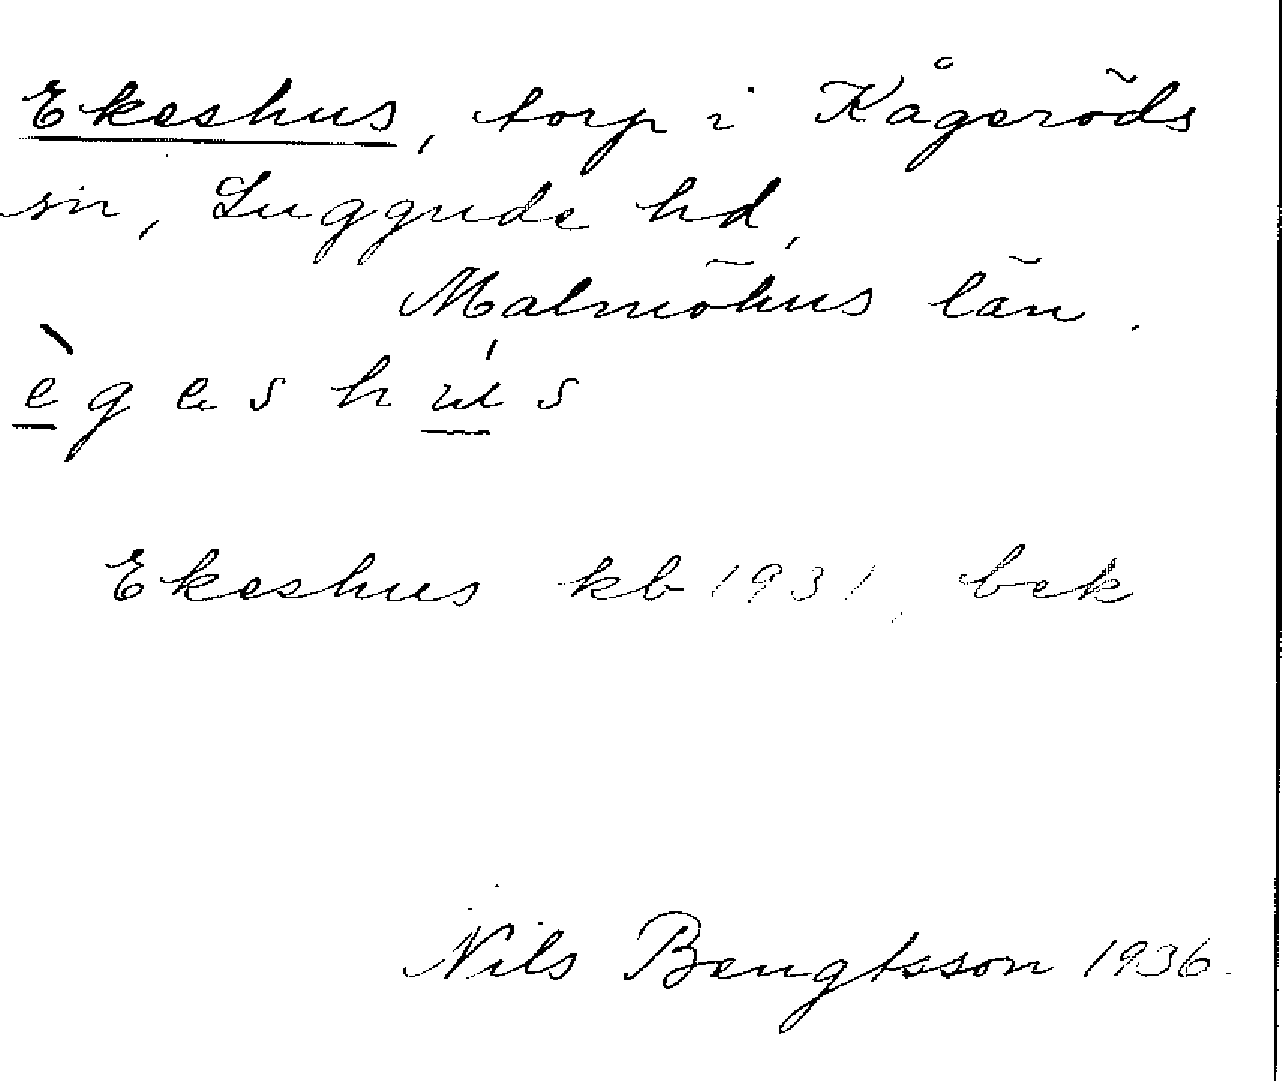 Ekeshus, torp i Kågeröds
sn, Luggude hd,
Malmöhus län.
ègeshu̍s
Ekeshus kb 1931, bek
Nils Bengtsson 1936.